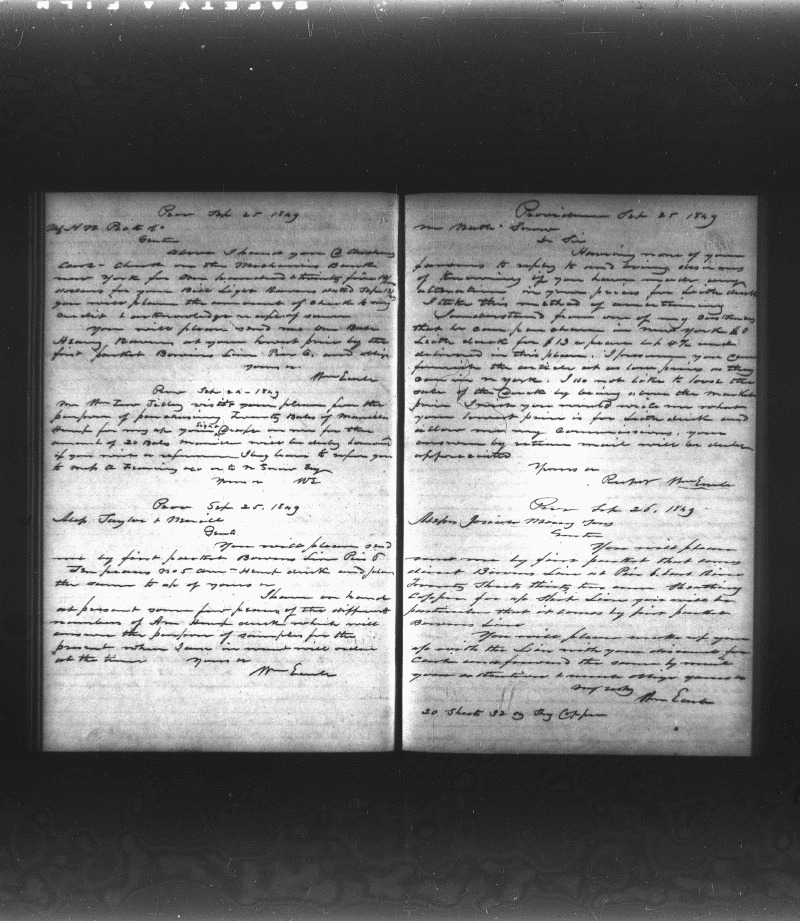 SAFETY FILM
Prov Sep 25 1849
Gents
Above I hand you
Cash - Check on the Mechanics Bank
New York for One hundred & twenty five
dollars for your Bill Light Ravens dated Sep
you will please the amount of check to my
credit & acknowledge receipt of same
You will please send me One Bale
Heavy Ravens at your lowest price by the
first packet Bowens Line Pier 6. and oblige
Yours &c
Wm Earle
Prov Sep 24 - 1849
visits your place for the
purpose of purchasing Twenty Bales of Manilla
Hemp for me
amount of 20 Bales Manilla will be duly honored
if you wish a reference I beg leave to refer you
to
Yours &c WE
Prov Sep 25. 1849
Taylor &
Gents
You will please send
me by first packet Bowens Line Pier 6
Ten pieces No 5 Am - Hemp duck and place
the same to a/c of yours &c
I have on hand
at present some few pieces of the different
numbers of Am Hemp duck which will
answer the purpose of samples for the
present when I am in want will order
at the time Yours &c
Wm Earle
Providence Sep 25 1849
Mr Nathl Snow
Dr Sir
Having none of your
favors to reply to and being desirous
of knowing if you have made any
alteration in your prices for Leith duck
I take this method of ascertaining
I understand from one of my customers
that he can purchase in New York
Leith duck for $13 a piece
delivered in this place. I presume you can
furnish the article at as low prices as they
can in N York. I do not like to loose the
sale of the Duck by being above the market
price I wish you would write me what
your lowest price is for Leith duck and
allow me my commissions. your
answer by return mail will be duly
appreciated
Yours &c
Respect Wm Earle
Prov Sep 26. 1849
Josiah
Gents
You will please
send me by first packet that comes
direct Bowens Line at Pier 6. East River
Twenty Sheets thirty two oz Sheathing
Copper for a/c that Line you will be
particular that it comes by first packet
Bowens Line
You will please make up your
a/c with the Line with your discount for
Cash and forward the same by mail
your attention & much oblige yours &c
Wm Earle
20 Sheets 32 oz Copper